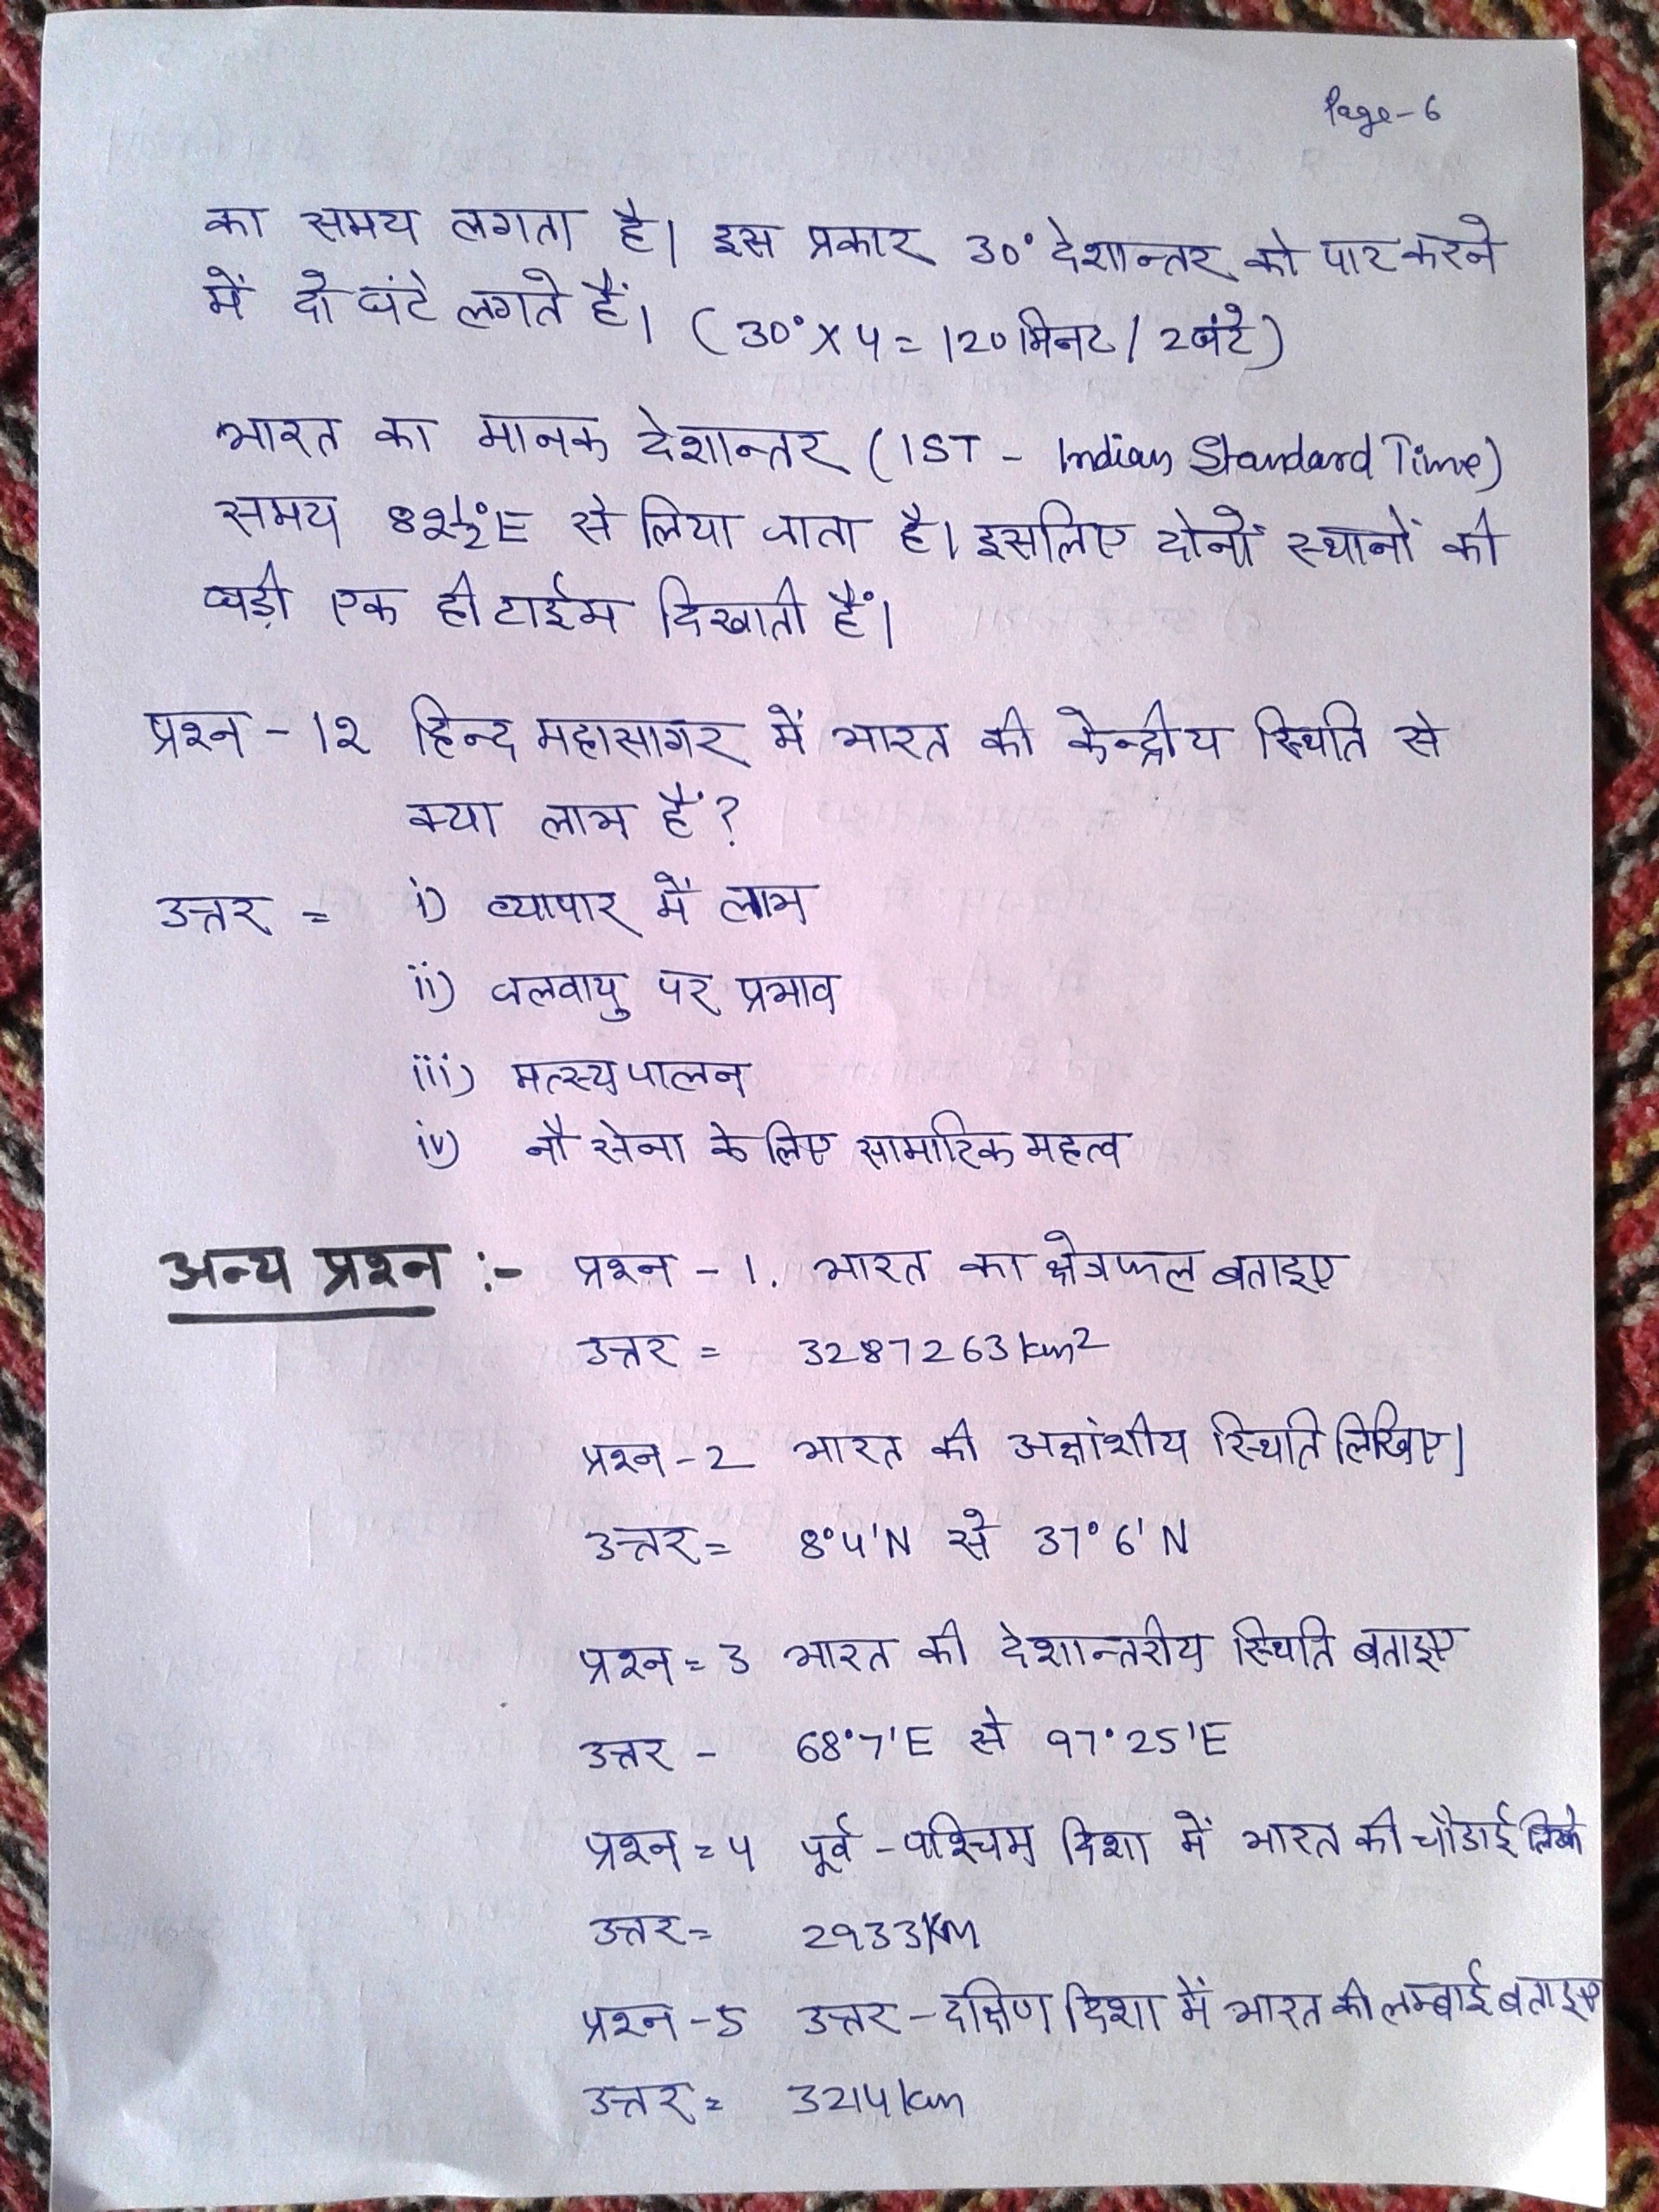 Page-6
का समय लगता है। इस प्रकार 30° देशान्तर को पार करने
में दो घंटे लगते हैं। (30°×4=120मिनट/2घंटे)
भारत का मानक देशान्तर (IST - Indian Standard Time)
समय 8२½°E से लिया जाता है। इसलिए दोनों स्थानों की
घड़ी एक ही टाईम दिखाती हैं।
प्रश्न - 1२ हिन्द महासागर में भारत की केन्द्रीय स्थिति से
क्या लाभ हैं?
उत्तर = i) व्यापार में लाभ
ii) जलवायु पर प्रभाव
iii) मत्स्य पालन
iv) नौ सेना के लिए सामारिक महत्व
अन्य प्रश्न :- प्रश्न - 1. भारत का क्षेत्रफल बताइए
उत्तर = 3287263km²
प्रश्न - 2 भारत की अक्षांशीय स्थिति लिखिए।
उत्तर = 8°4'N से 37°6'N
प्रश्न = 3 भारत की देशान्तरीय स्थिति बताइए
उत्तर - 68°7'E से 97°25'E
प्रश्न = 4 पूर्व - पश्चिम दिशा में भारत की चौडाई लिखे
उत्तर = 2933km
प्रश्न - 5 उत्तर - दक्षिण दिशा में भारत की लम्बाई बताइए
उत्तर = 3214km